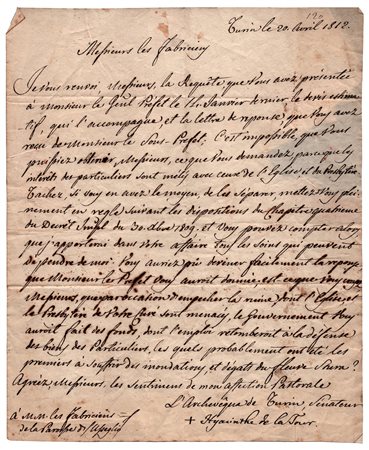 120
Turin le 20. Avril 1812.
Messieurs les Fabriciens
Je vous renvoi, Messieurs, la Requête que vous avez présentée
à Monsieur le Gén.l Préfet le 14. Janvier dernier, le devis estima
tif, qui l'accompagne, et la lettre de réponse, que vous avez
reçue de Monsieur le Sous-Préfet. C'est impossible, que vous
puissiez obtenir, Messieurs, ce que vous demandez, parceque les
intérêts des particuliers sont mêlés avec ceux de l'Eglise, et du Presbytère.
Tachez, si vous en avez le moyen, de les séparer, mettez vous plei-
nement en regle suivant les dispositions du Chapitre quatrieme
du Decret Impl. du 30. Xbre 1809. et vous pouvez compter alors,
que j'apporterai dans votre affaire tous les soins qui peuvent
dépendre de moi. Vous auriez pu deviner facilement la réponse
que Monsieur le Préfet vous auroit donnée, est ce que vous
Messieurs, que par occasion d'empecher la ruine, dont l'Eglise, et
le Presbytère de votre Curé sont menacés, le Gouvernement vous
auroit fait des fonds, dont l'emploi retomberoit à la défense
des biens des Particuliers, les quels probablement ont été les
premiers à souffrir des inondations, et dégats du fleuve
Agréez, Messieurs, les Sentimens de mon affection Pastorale
L'Archevêque de Turin, Senateur
+ Hyacinthe de la Tour
à M.M. les Fabriciens
de la Paroisse d'